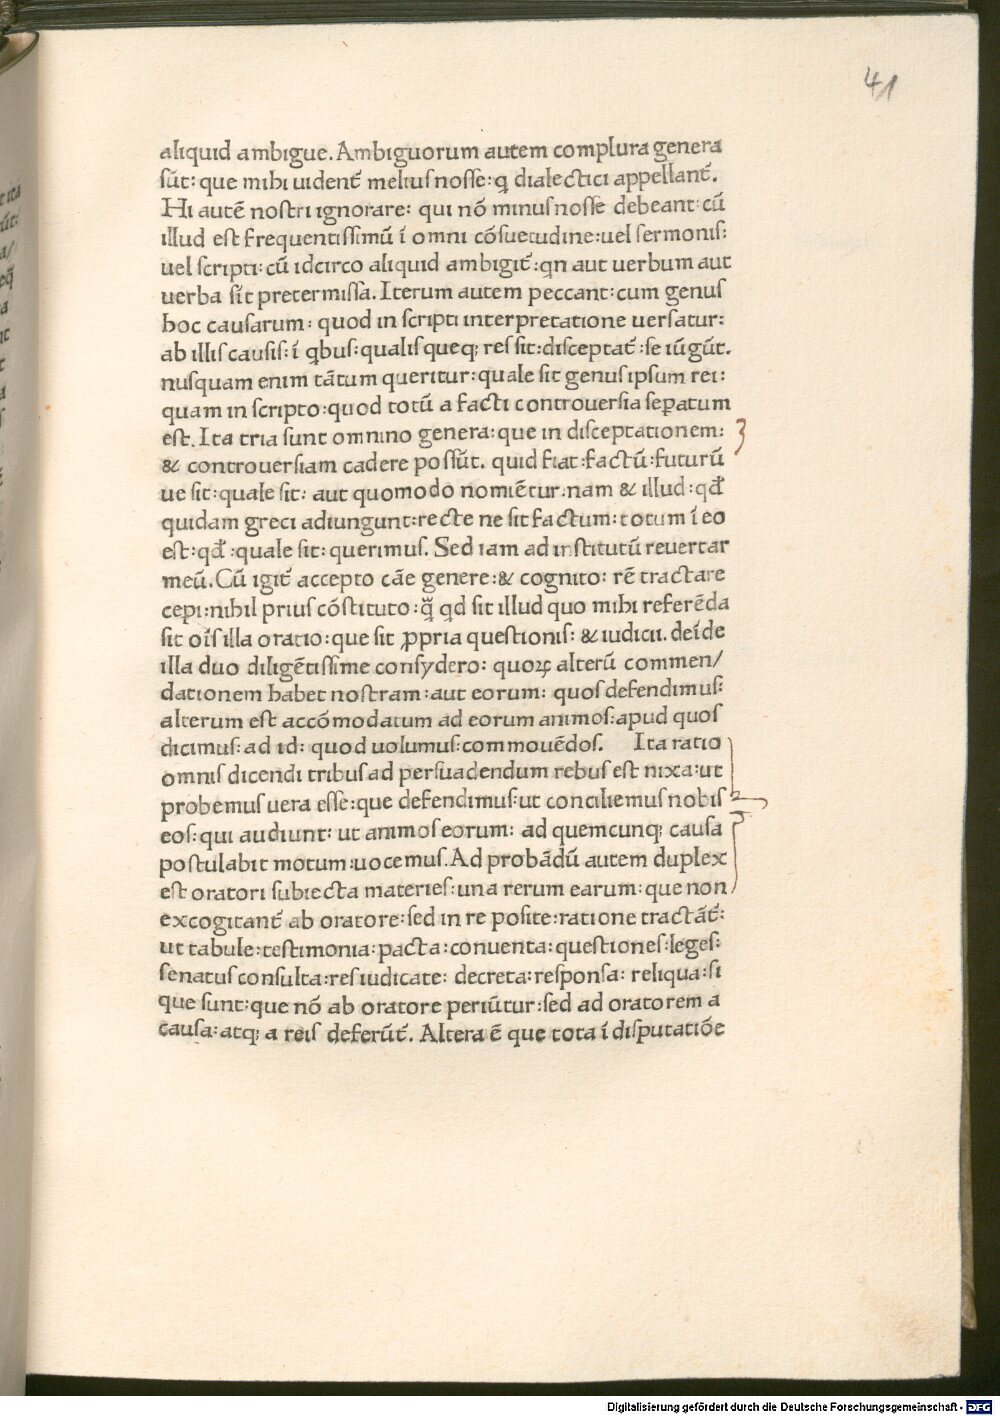 41
aliquid ambigue. Ambiguorum autem complura genera
ſūt: que mibi uident᷑ meliuſ noſſe: q̄ dialectici appellant᷑.
Hi autē noſtri ignorare: qui nō minuſ noſſe debeant: cū
illud eſt frequentiſſimū ī omni cōſuetudine: uel ſermoniſ:
uel ſcripti: cū idcirco aliquid ambigit᷑: qn aut uerbum aut
uerba ſīt pretermiſſa. Iterum autem peccant: cum genuſ
hoc cauſarum: quod in ſcripti interpretatione uerſatur:
ab illiſ cauſiſ: ī qbuſ: qualiſ queq; reſ ſit: diſceptat᷑: ſe iūgūt.
nuſquam enim tātum queritur: quale ſit genuſ ipſum rei:
quam in ſcripto: quod totū a facti controuerſia ſeꝑatum
eſt. Ita tria ſunt omnino genera: que in diſceptationem:
& controuerſiam cadere poſſūt. quid fiat: factū: futurū
ue ſit: quale ſit: aut quomodo nomiētur. nam & illud: qđ
quidam greci adiungunt: recte ne ſit factum: totum ī eo
eſt: qđ: quale ſit: querimuſ. Sed iam ad inſtitutū reuertar
meū. Cū igit᷑ accepto cāe genere: & cognito: rē tractare
cepi: nihil priuſ cōſtituto: q̈̄ qd ſit illud quo mihi referēda
ſit oīſ illa oratio: que ſit ꝓpria queſtioniſ: & iudicii. deīde
illa duo diligētiſſime conſydero: quoꝝ alterū commen/
dationem habet noſtram: aut eorum: quoſ defendimuſ:
alterum eſt accōmodatum ad eorum animoſ: apud quoſ
dicimuſ: ad id: quod uolumuſ: commouēdoſ. Ita ratio
omniſ dicendi tribuſ ad perſuadendum rebuſ eſt nixa: ut
probemuſ uera eſſe: que defendimuſ: ut conciliemuſ nobiſ
eoſ: qui audiunt: ut animoſ eorum: ad quemcunq; cauſa
poſtulabit motum: uocemuſ. Ad probādū autem duplex
eſt oratori ſubiecta materieſ: una rerum earum: que non
excogitant᷑ ab oratore: ſed in re poſite: ratione tractāt᷑:
ut tabule: teſtimonia: pacta: conuenta: queſtioneſ: legeſ:
ſenatuſ conſulta: reſ iudicate: decreta: reſponſa: reliqua: ſi
que ſunt: que nō ab oratore periūtur: ſed ad oratorem a
cauſa: atq; a reiſ deferūt᷑. Altera ē que tota ī diſputatiōe
Digitalisierung gefördert durch die Deutsche Forschungsgemeinschaft - DFG